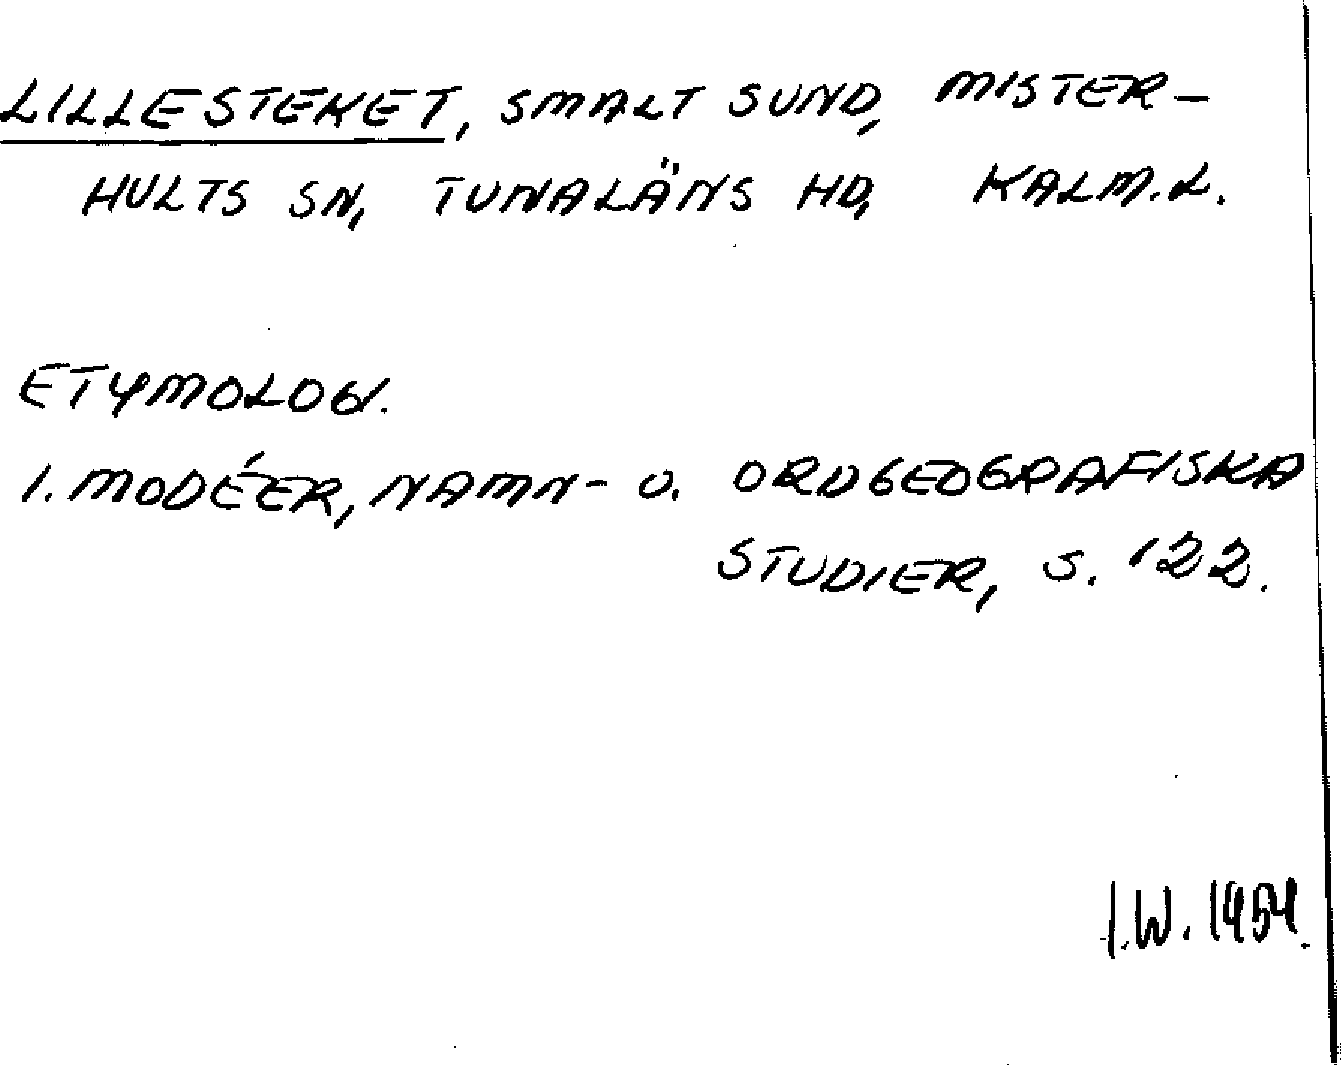 LILLESTEKET, SMALT SUND, MISTER-
HULTS SN, TUNALÄNS HD, KALM.L.
ETYMOLOGI.
I. MODÉER, NAMN- O. ORDGEOGRAFISKA
STUDIER, S. 122.
I.W. 1954.